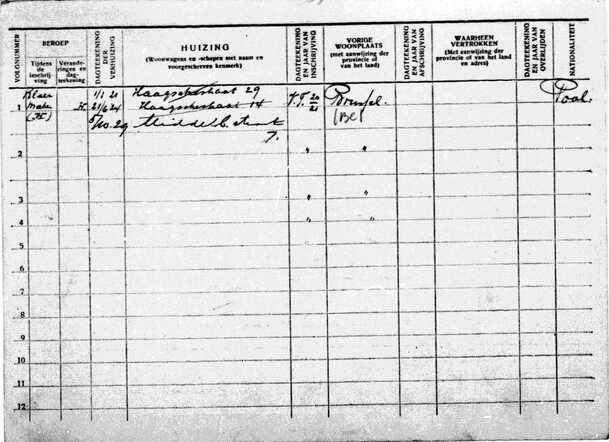 VOLGNUMMER
BEROEP
Tijdens de inschrijving
Veranderingen en dagteekening
DAGTEEKENING DER VERHUIZING
HUIZING
(Woonwagens en -schepen met naam en voorgeschreven kenmerk)
DAGTEEKENING EN JAAR VAN INSCHRIJVING
VORIGE WOONPLAATS
(met aanwijzing der provincie of van het land)
DAGTEEKENING EN JAAR VAN AFSCHRIJVING
WAARHEEN VERTROKKEN
(Met aanwijzing der provincie of van het land en adres)
DAGTEEKENING EN JAAR VAN OVERLIJDEN
NATIONALITEIT
1/1 21 Haagschestraat 29
1 21/6 24 Haagschestraat 14 20/21 Brussel. Pool.
(BE)
29
7.
2 " "
3 " "
4 " "
5
6
7
8
9
10
11
12